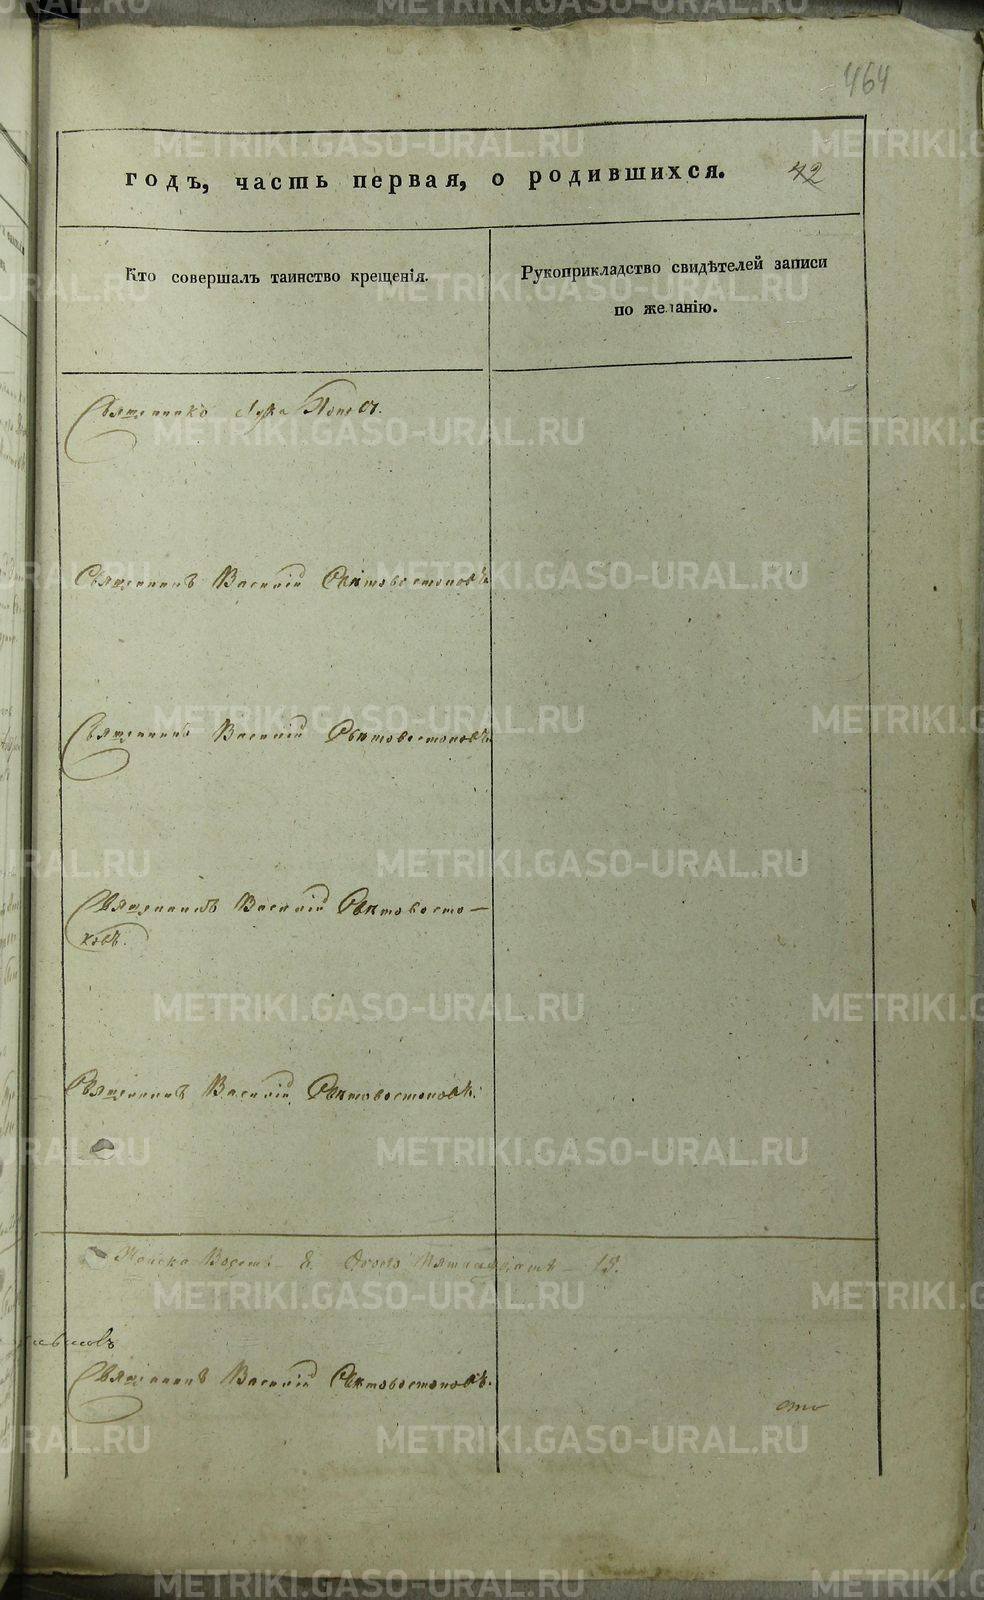 464
годъ, часть первая, о родившихся. 42
Кто совершалъ таинство крещенія.
Рукоприкладство свидѣтелей записи
по желанію.
Священникъ Лука Поповъ.
Священникъ Василій Свѣтовостоковъ
Священникъ Василій Свѣтовостоковъ
Священникъ Василій Свѣтовосто—
ковъ.
Священникъ Василій Свѣтовостоковъ.
Женска Восемь – 8. Обоего Пятнадцать – 15.
Священникъ Василій Свѣтовостоковъ.
METRIKI.GASO-URAL.RU